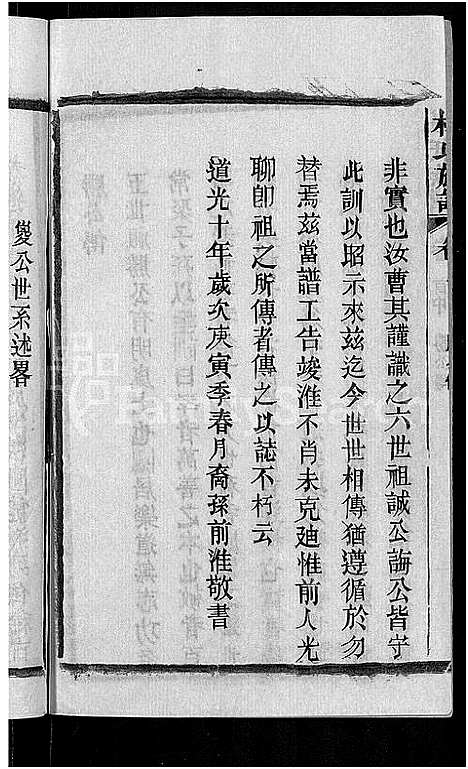 非實也汝曹其謹識之六世祖誠公誨公皆守
此訓以昭示來茲迄今世世相傳猶遵循於勿
替焉茲當譜工告竣淮不肖未克廸惟前人光
聊卽祖之所傳者傳之以誌不朽云
道光十年歲次庚寅季春月裔孫前淮敬書
公世系述畧